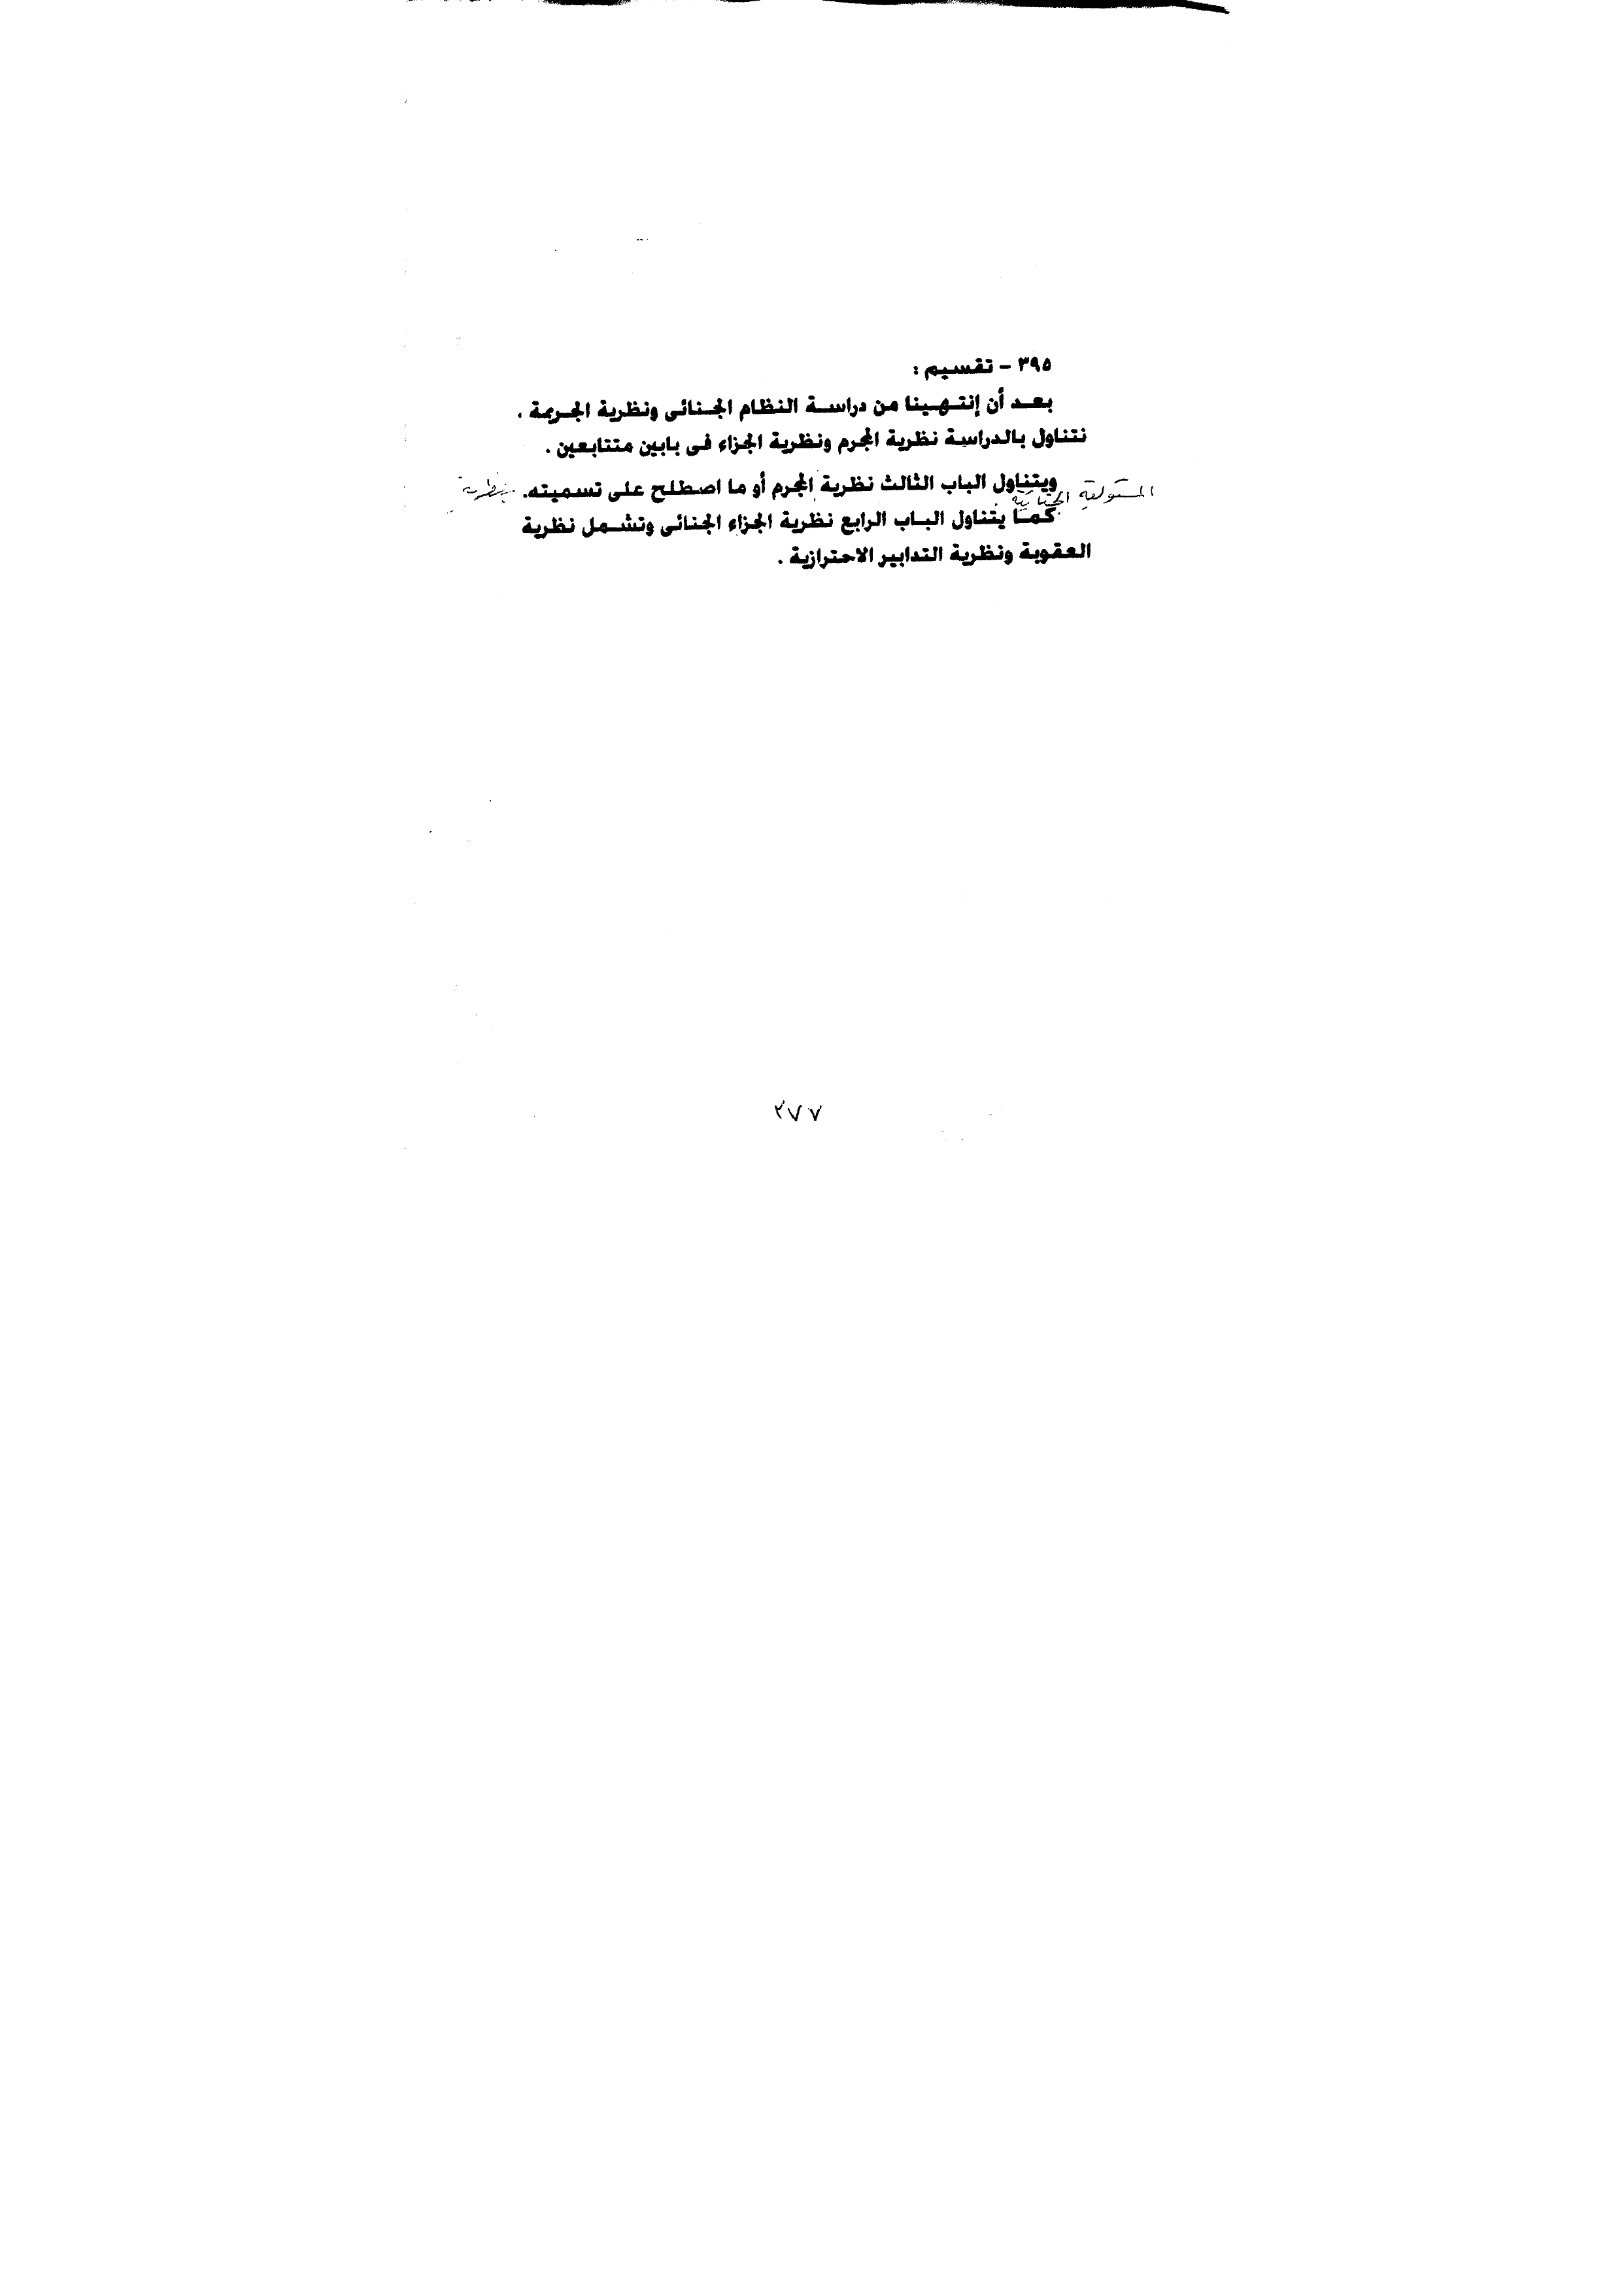 ٣٩٥ – تقسيم :
بعد أن إنتهينا من دراسة النظام الجنائى ونظرية الجريمة .
نتناول بالدراسة نظرية المجرم ونظرية الجزاء فى بابين متتابعين .
ويتناول الباب الثالث نظرية المجرم أو ما اصطلح على تسميته. بنظرية
المسئولية الجنائية
كما يتناول الباب الرابع نظرية الجزاء الجنائى وتشمل نظرية
العقوبة ونظرية التدابير الاحترازية .
٢٧٧